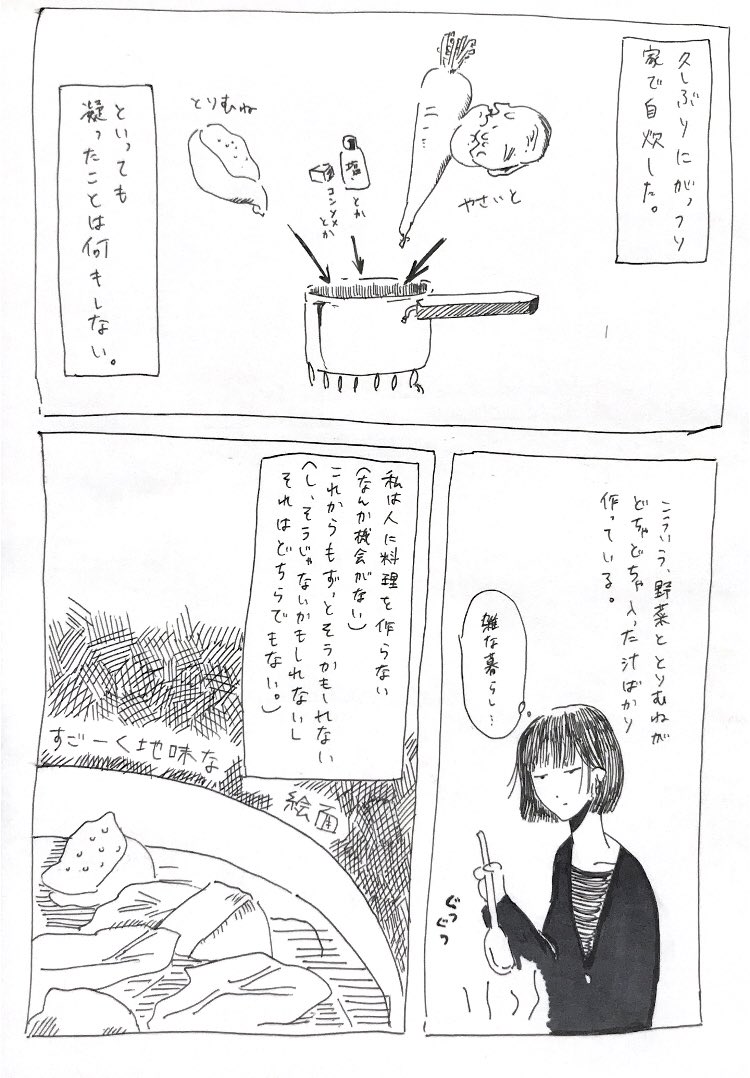 久しぶりにがっつり
家で自炊した。
やさいと
塩
とか
コンソメ
とか
とりむね
といっても
凝ったことは何もしない。
こういう、野菜ととりむねが
どちゃどちゃ入った汁ばかり
作っている。
雑な暮らし…
ぐつ
ぐつ
私は人に料理を作らない
(なんか機会がない)
これからもずっとそうかもしれない
(し、そうじゃないかもしれないし
それはどちらでもない。)
すごーく地味な
絵面